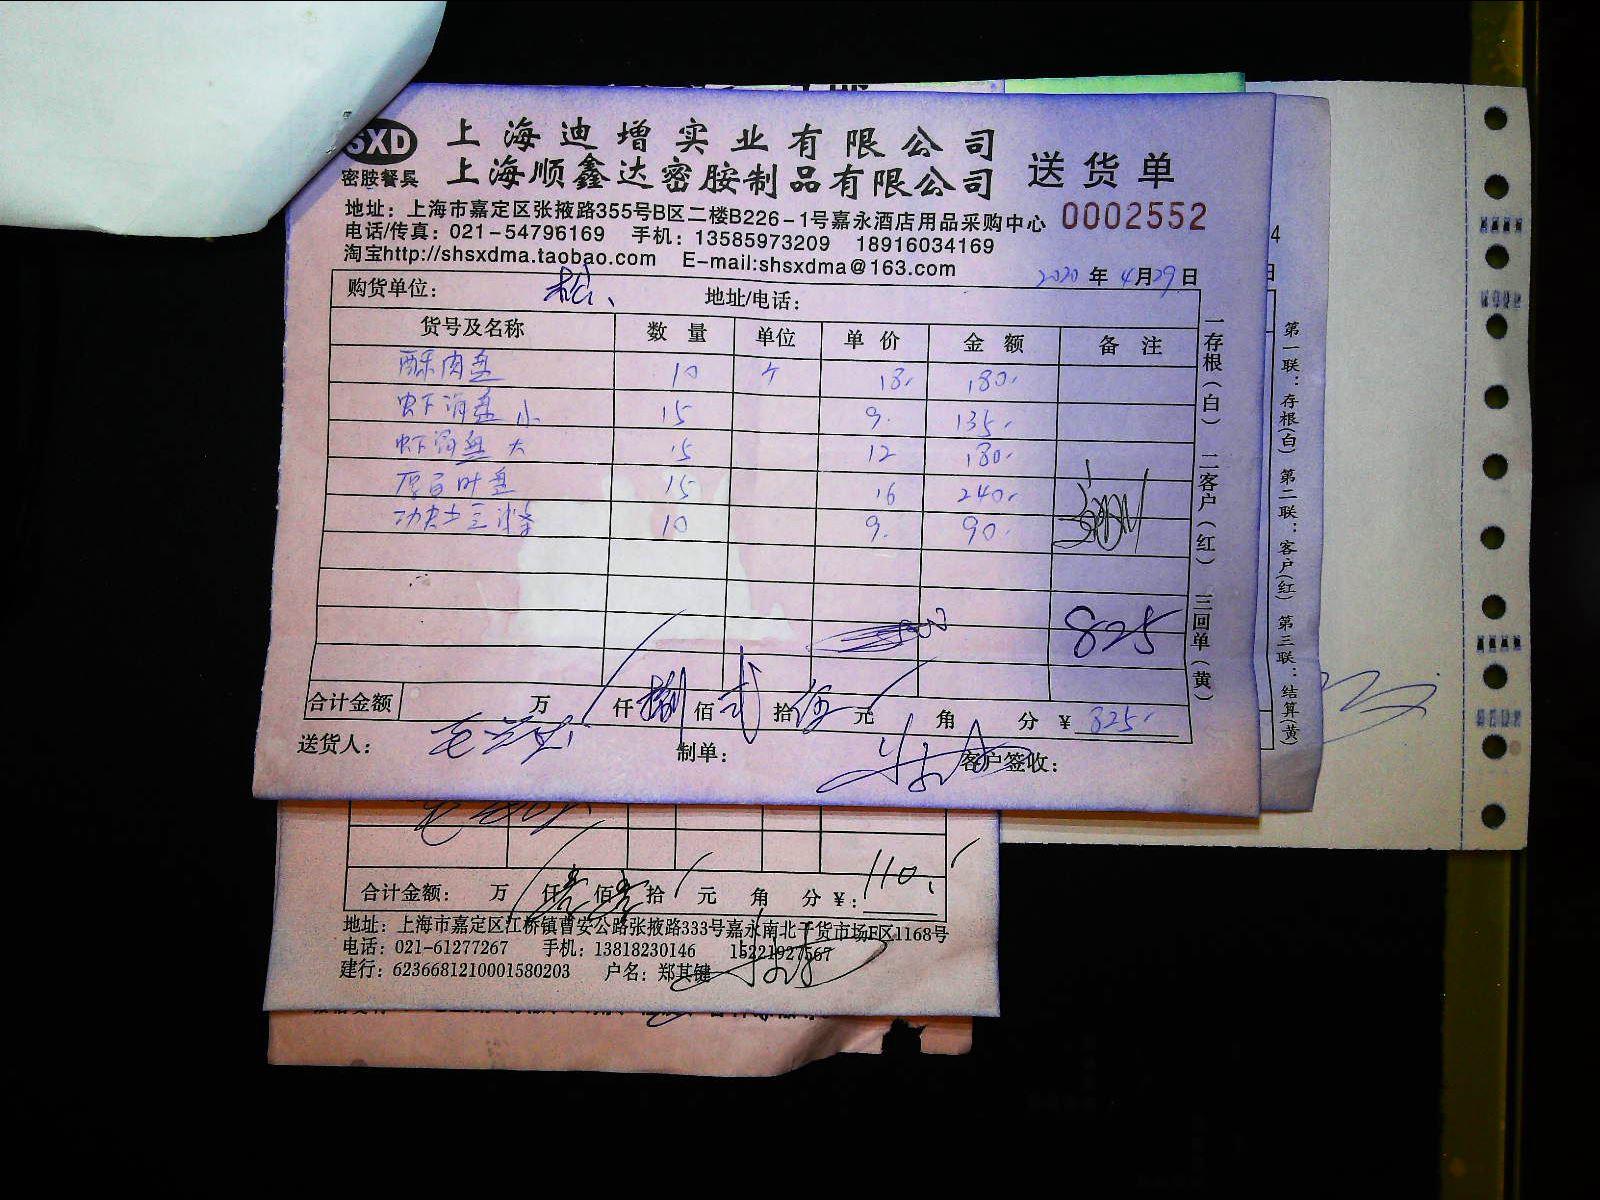 SXD
密胺餐具
上海迪增实业有限公司
上海顺鑫达密胺制品有限公司
送货单
地址：上海市嘉定区张掖路355号B区二楼B226-1号嘉永酒店用品采购中心
0002552
电话/传真：021-54796169 手机：13585973209 18916034169
淘宝http://shsxdma.taobao.com E-mail:shsxdma@163.com
2020年4月29日
购货单位： 松、 地址/电话：
货号及名称 数量 单位 单价 金额 备注
酥肉盘 10 个 18. 180.
虾滑盘 小 15 9. 135.
虾滑盘 大 15 12 180.
厚百叶盘 15 16 240.
功夫土豆 10 9. 90.
825
合计金额 万 仟 捌 佰 贰 拾 伍 元 角 分 ￥ 825.
送货人： 制单： 客户签收：
一存根（白） 二客户（红） 三回单（黄）
第一联：存根（白） 第二联：客户（红） 第三联：结算（黄）
4
日
合计金额： 万 仟 壹 佰 壹 拾 元 角 分 ￥： 110.
地址：上海市嘉定区江桥镇曹安公路张掖路333号嘉永南北干货市场F区1168号
电话：021-61277267 手机：13818230146 15221927567
建行：6236681210001580203 户名：郑其键